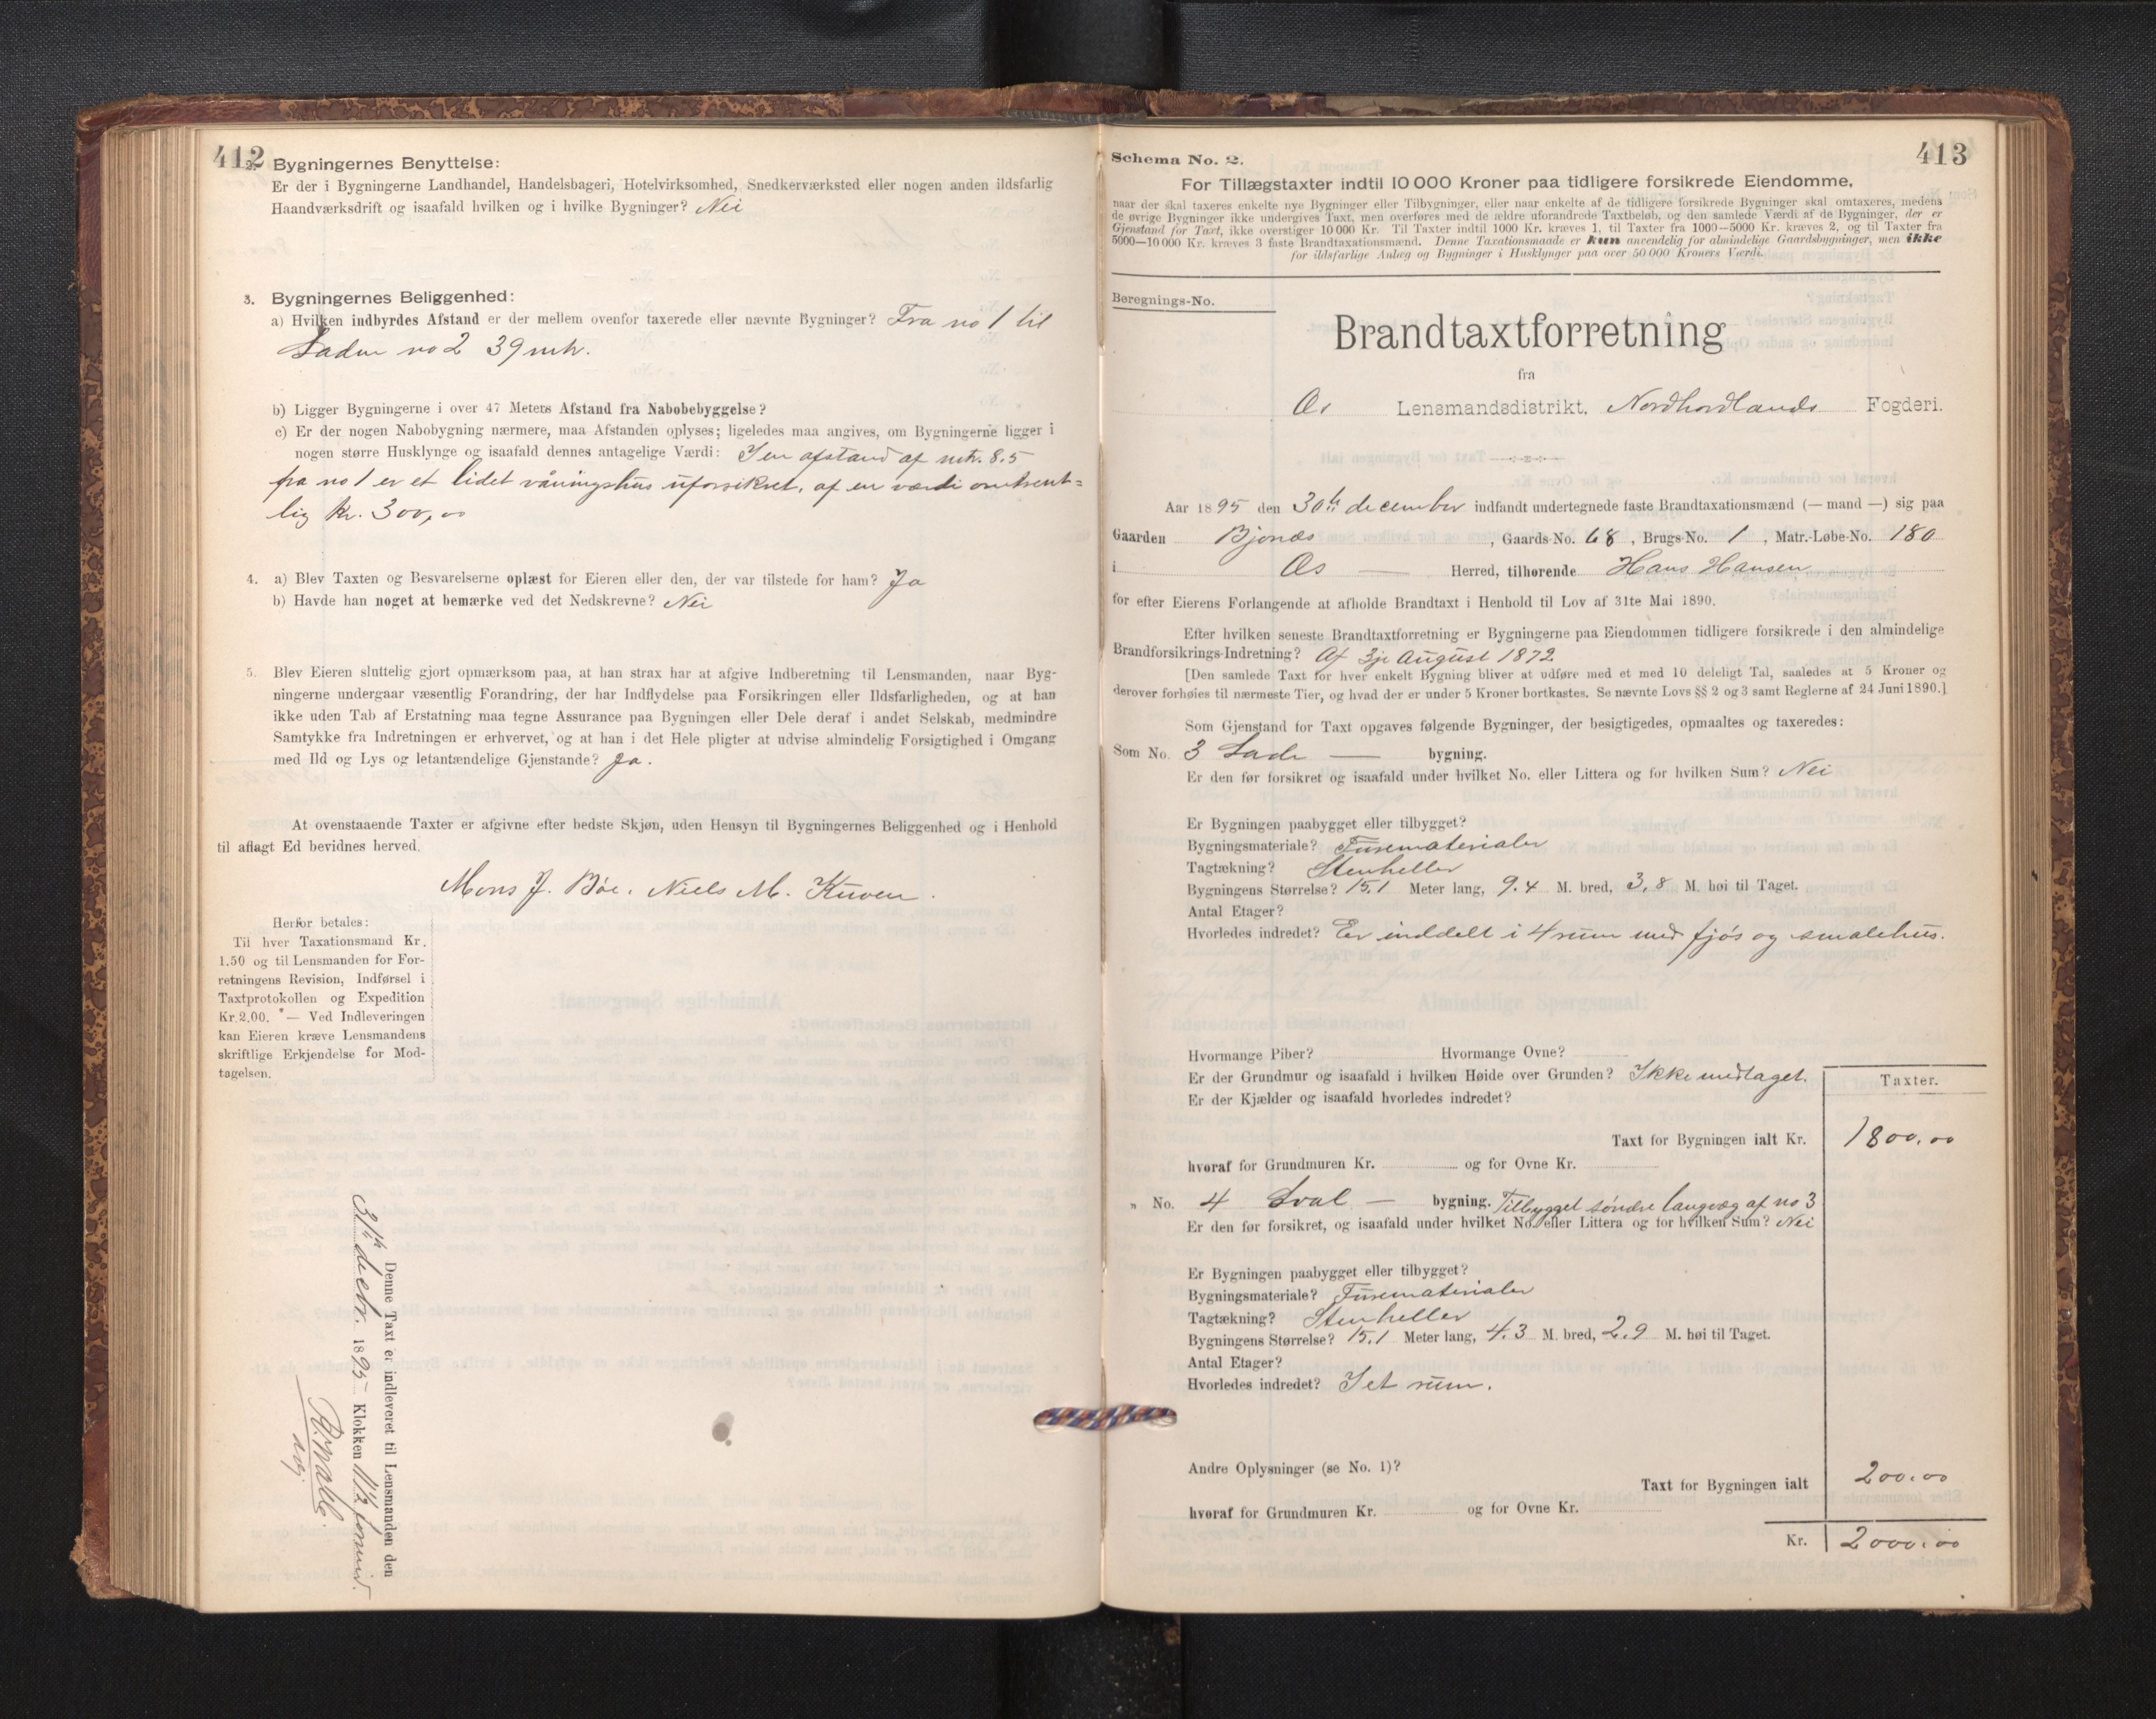 412
2. Bygningernes Benyttelse:
Er der i Bygningerne Landhandel, Handelsbageri, Hotelvirksomhed, Snedkerværksted eller nogen anden ildsfarlig
Haandværksdrift og isaafald hvilken og i hvilke Bygninger? Nei
3. Bygningernes Beliggenhed:
a) Hvilken indbyrdes Afstand er der mellem ovenfor taxerede eller nævnte Bygninger? Fra no 1 til
Laden no 2 39 mtr.
b) Ligger Bygningerne i over 47 Meters Afstand fra Nabobebyggelse?
c) Er der nogen Nabobygning nærmere, maa Afstanden oplyses; ligeledes maa angives, om Bygningerne ligger i
nogen større Husklynge og isaafald dennes antagelige Værdi: I en afstand af mtr. 8.5
fra no 1 er et lidet våningshus uforsikret, af en værdi omtrent=
lig Kr. 300,00
4. a) Blev Taxten og Besvarelserne oplæst for Eieren eller den, der var tilstede for ham? Ja
b) Havde han noget at bemærke ved det Nedskrevne? Nei
5. Blev Eieren sluttelig gjort opmærksom paa, at han strax har at afgive Indberetning til Lensmanden, naar Byg-
ningerne undergaar væsentlig Forandring, der har Indflydelse paa Forsikringen eller Ildsfarligheden, og at han
ikke uden Tab af Erstatning maa tegne Assurance paa Bygningen eller Dele deraf i andet Selskab, medmindre
Samtykke fra Indretningen er erhvervet, og at han i det Hele pligter at udvise almindelig Forsigtighed i Omgang
med Ild og Lys og letantændelige Gjenstande? Ja.
At ovenstaaende Taxter er afgivne efter bedste Skjøn, uden Hensyn til Bygningernes Beliggenhed og i Henhold
til aflagt Ed bevidnes herved.
Mons J. Bøe. Niels M. Kuven.
Herfor betales:
Til hver Taxationsmand Kr.
1.50 og til Lensmanden for For-
retningens Revision, Indførsel i
Taxtprotokollen og Expedition
Kr. 2.00. — Ved Indleveringen
kan Eieren kræve Lensmandens
skriftlige Erkjendelse for Mod-
tagelsen.
Denne Taxt er indleveret til Lensmanden den
31th decbr. 1895 Klokken 11½ formid.
413
Schema No. 2.
For Tillægstaxter indtil 10 000 Kroner paa tidligere forsikrede Eiendomme,
naar der skal taxeres enkelte nye Bygninger eller Tilbygninger, eller naar enkelte af de tidligere forsikrede Bygninger skal omtaxeres, medens
de øvrige Bygninger ikke undergives Taxt, men overføres med de ældre uforandrede Taxtbeløb, og den samlede Værdi af de Bygninger, der er
Gjenstand for Taxt, ikke overstiger 10 000 Kr. Til Taxter indtil 1000 Kr. kræves 1, til Taxter fra 1000—5000 Kr. kræves 2, og til Taxter fra
5000—10 000 Kr. kræves 3 faste Brandtaxationsmænd. Denne Taxationsmaade er kun anvendelig for almindelige Gaardsbygninger, men ikke
for ildsfarlige Anlæg og Bygninger i Husklynger paa over 50 000 Kroners Værdi.
Beregnings-No.
Brandtaxtforretning
fra
Os Lensmandsdistrikt, Nordhordlands Fogderi.
Aar 1895 den 30te december indfandt undertegnede faste Brandtaxationsmænd (— mand —) sig paa
Gaarden Bjonæs, Gaards-No. 68, Brugs-No. 1, Matr.-Løbe-No. 180
i Os — Herred, tilhørende Hans Hansen
for efter Eierens Forlangende at afholde Brandtaxt i Henhold til Lov af 31te Mai 1890.
Efter hvilken seneste Brandtaxtforretning er Bygningerne paa Eiendommen tidligere forsikrede i den almindelige
Brandforsikrings-Indretning? Af 3je August 1872
[Den samlede Taxt for hver enkelt Bygning bliver at udføre med et med 10 deleligt Tal, saaledes at 5 Kroner og
derover forhøies til nærmeste Tier, og hvad der er under 5 Kroner bortkastes. Se nævnte Lovs §§ 2 og 3 samt Reglerne af 24 Juni 1890.]
Som Gjenstand for Taxt opgaves følgende Bygninger, der besigtigedes, opmaaltes og taxeredes:
Som No. 3 Lade — bygning.
Er den før forsikret og isaafald under hvilket No. eller Littera og for hvilken Sum? Nei
Er Bygningen paabygget eller tilbygget?
Bygningsmateriale? Furematerialer
Tagtækning? Stenheller
Bygningens Størrelse? 15.1 Meter lang, 9.4 M. bred, 3,8 M. høi til Taget.
Antal Etager?
Hvorledes indredet? Er inddelt i 4 rum med fjøs og smalehus.
Hvormange Piber? Hvormange Ovne?
Er der Grundmur og isaafald i hvilken Høide over Grunden? Ikke medtaget.
Er der Kjælder og isaafald hvorledes indredet?
Taxter.
Taxt for Bygningen ialt Kr. 1800,00
hvoraf for Grundmuren Kr. og for Ovne Kr.
" No. 4 Sval — bygning. Tilbygget søndre langvæg af no 3
Er den før forsikret, og isaafald under hvilket No. eller Littera og for hvilken Sum? Nei
Er Bygningen paabygget eller tilbygget?
Bygningsmateriale? Furematerialer
Tagtækning? Stenheller
Bygningens Størrelse? 15.1 Meter lang, 4.3 M. bred, 2.9 M. høi til Taget.
Antal Etager?
Hvorledes indredet? I et rum.
Andre Oplysninger (se No. 1)?
Taxt for Bygningen ialt 200.00
hvoraf for Grundmuren Kr. og for Ovne Kr.
Kr. 2000.00